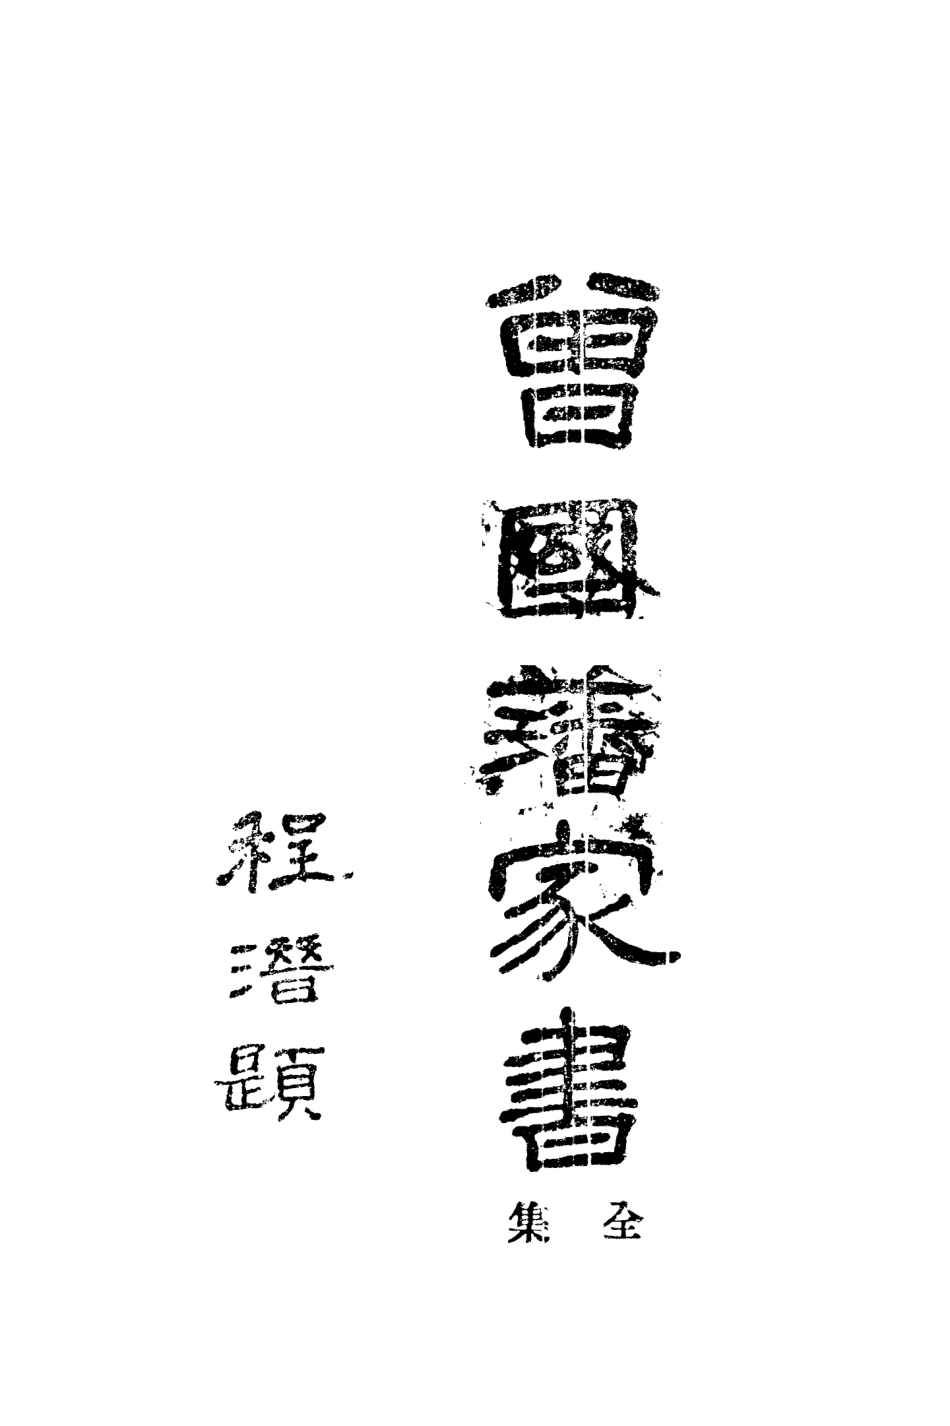 曾國藩家書
全集
程潛題